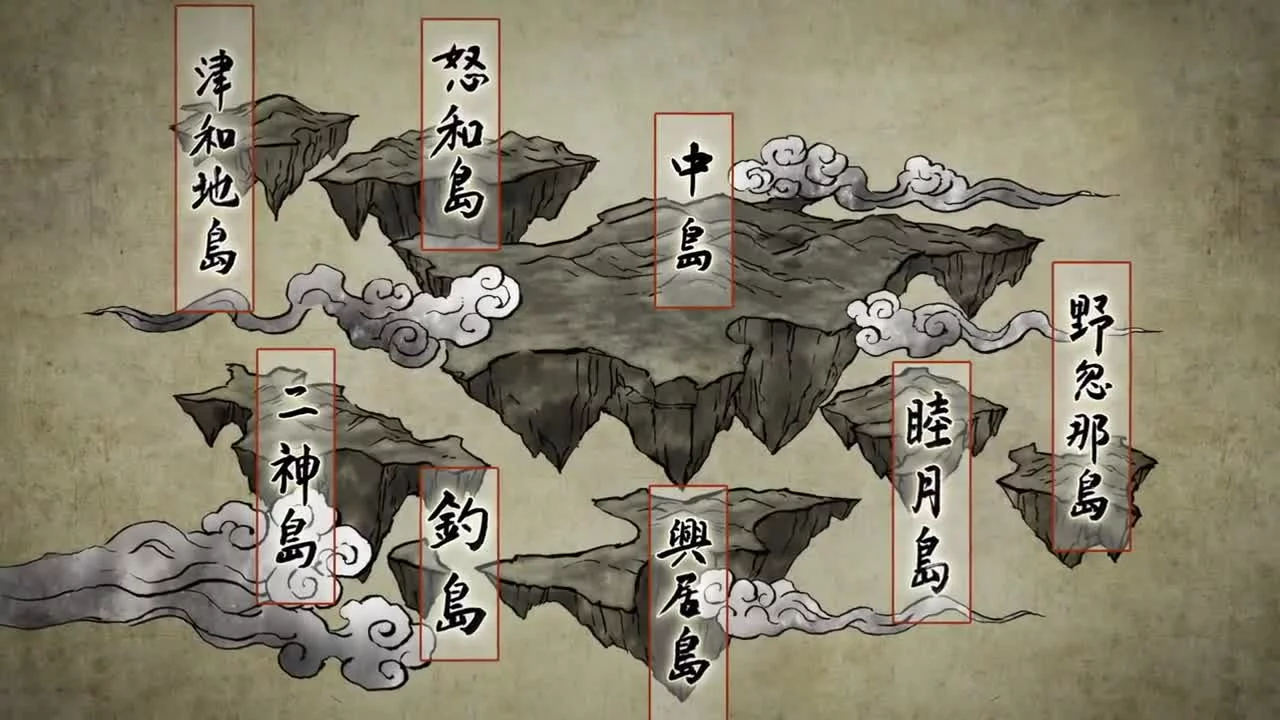 津和地島
怒和島
中島
野忽那島
二神島
釣島
興居島
睦月島